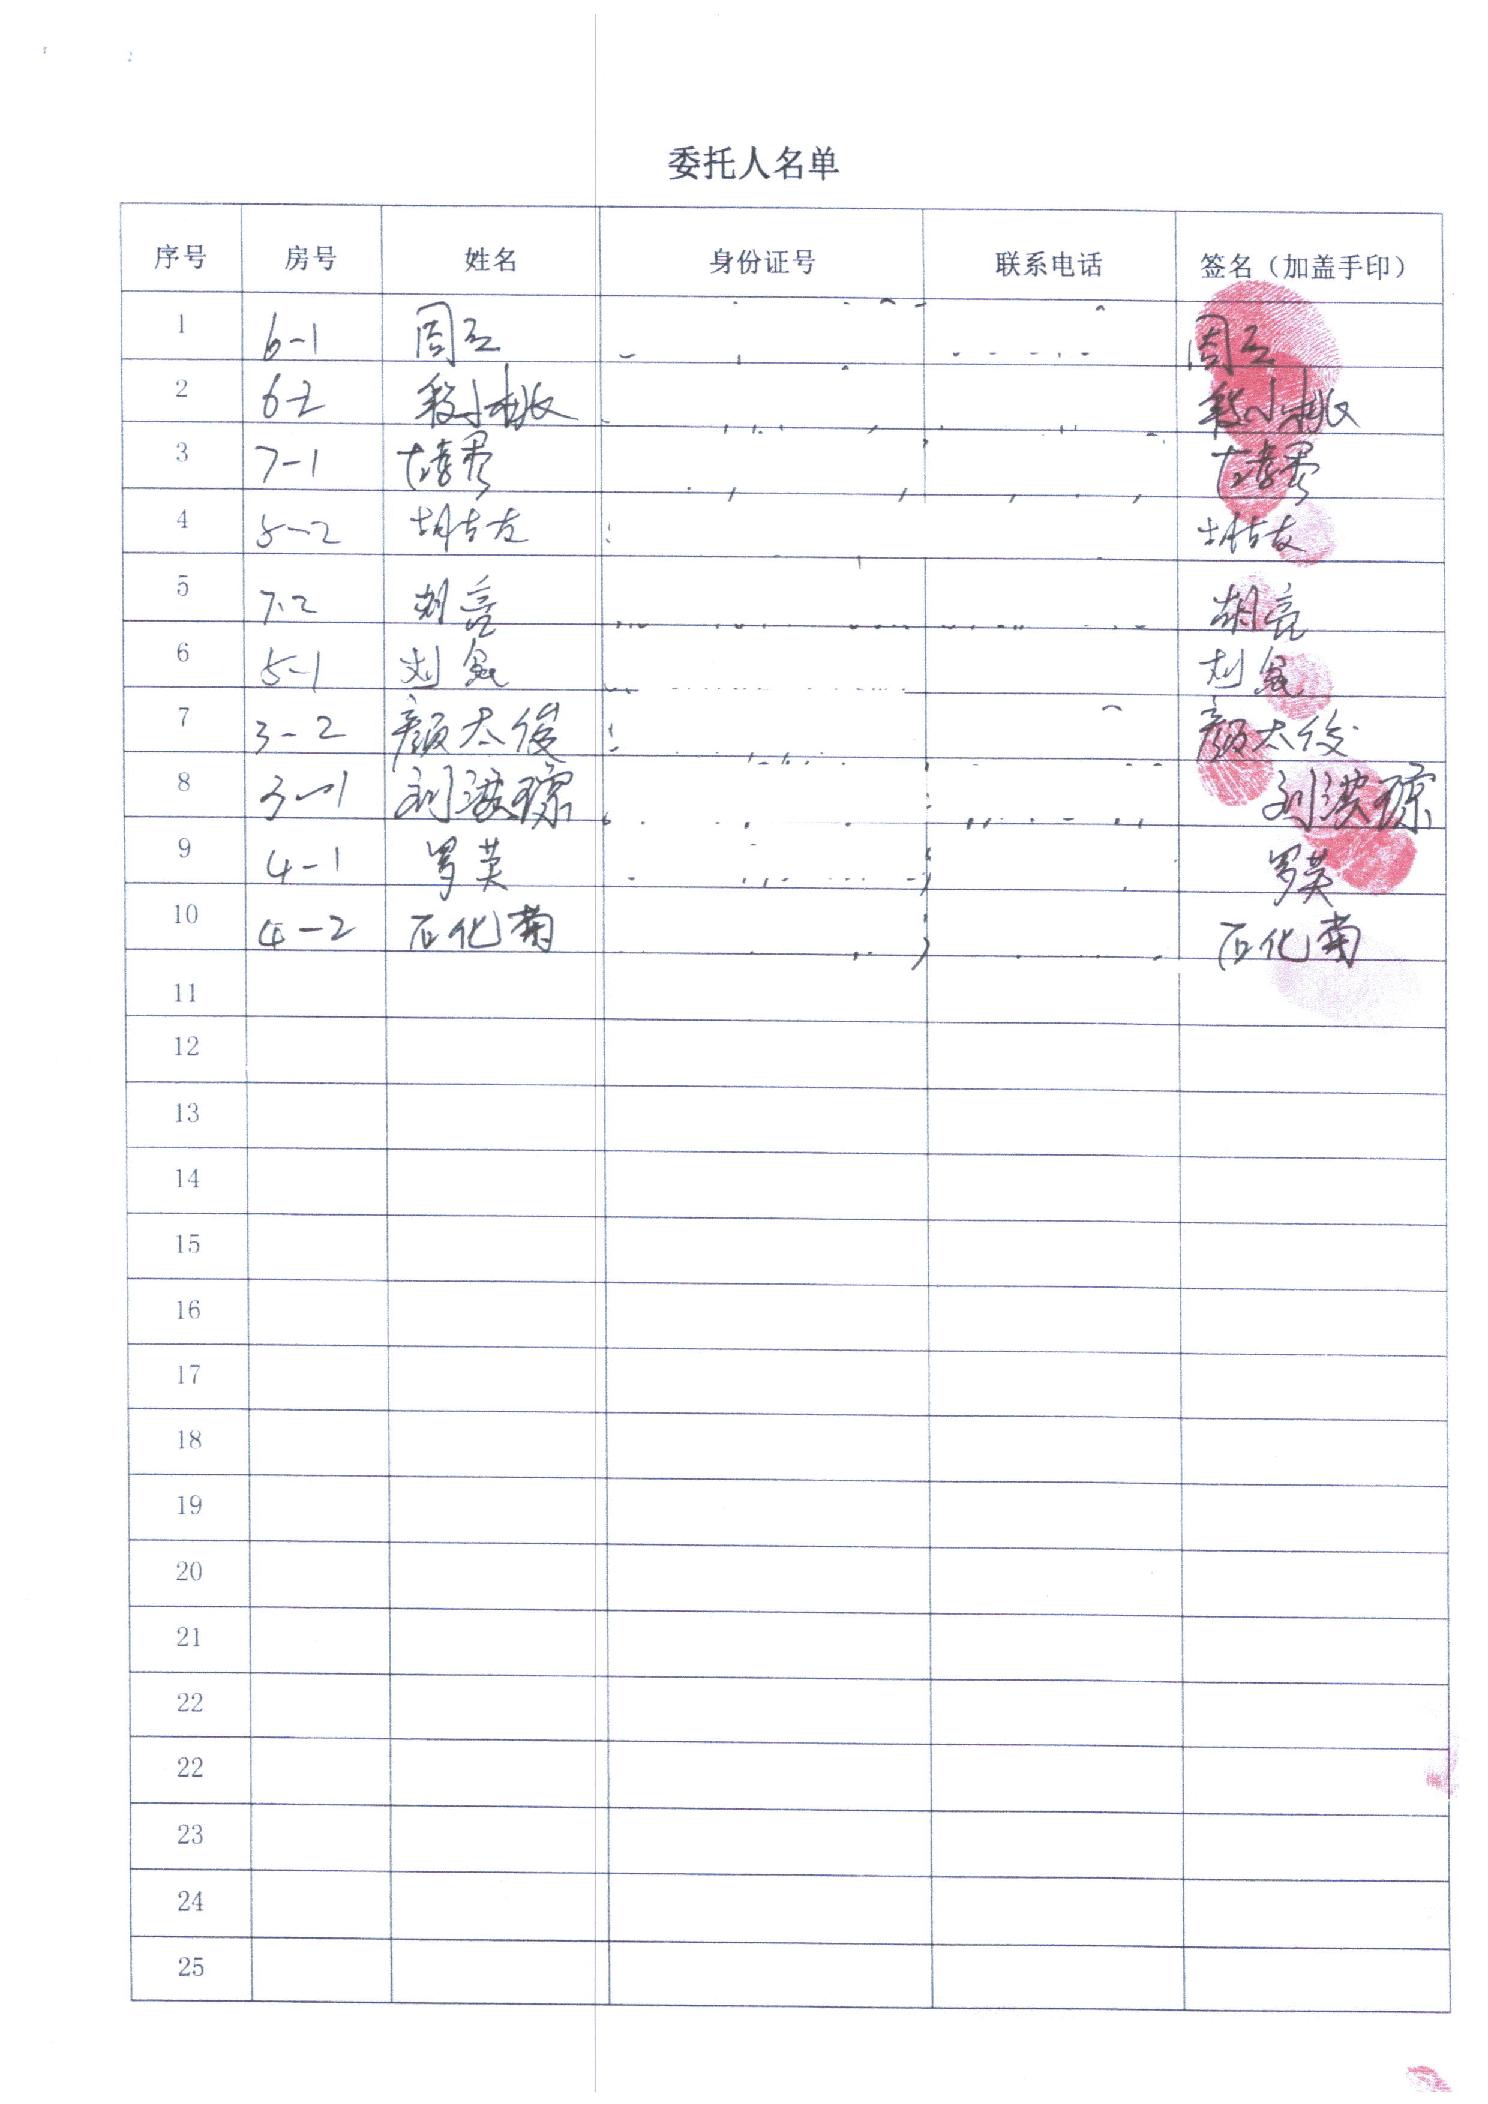 委托人名单
序号 房号 姓名 身份证号 联系电话 签名（加盖手印）
1 6-1 周立 周立
2 6-2 段小桃 段小桃
3 7-1
4 5-2 胡吉友 胡吉友
5 7.2 胡亮 胡亮
6 5-1 刘 刘
7 3-2 颜太俊 颜太俊
8 3-1 刘洪琼 刘洪琼
9 4-1 罗英 罗英
10 4-2 石化菊 石化菊
11
12
13
14
15
16
17
18
19
20
21
22
22
23
24
25